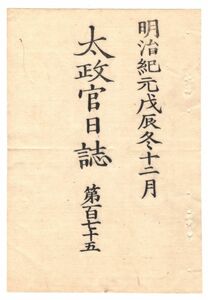 明治紀元戊辰冬十二月
太政官日誌
第百七十五